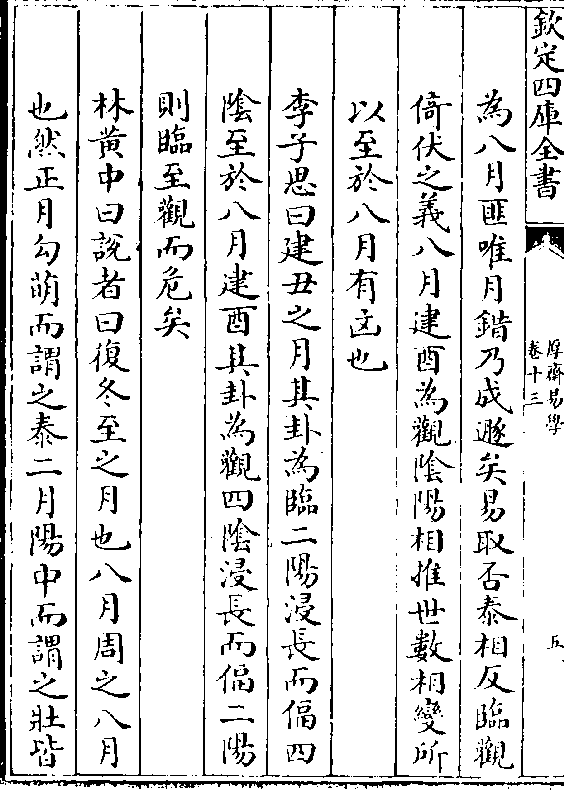 欽定四庫全書
厚齋易學
卷十三
五
為八月匪唯月錯乃成遯矣易取否泰相反臨觀
倚伏之義八月建酉為觀陰陽相推世數相變所
以至於八月有凶也
李子思曰建丑之月其卦為臨二陽浸長而偪四
陰至於八月建酉其卦為觀四陰浸長而偪二陽
則臨至觀而危矣
林黄中曰説者曰復冬至之月也八月周之八月
也然正月勾萌而謂之泰二月陽中而謂之壯皆